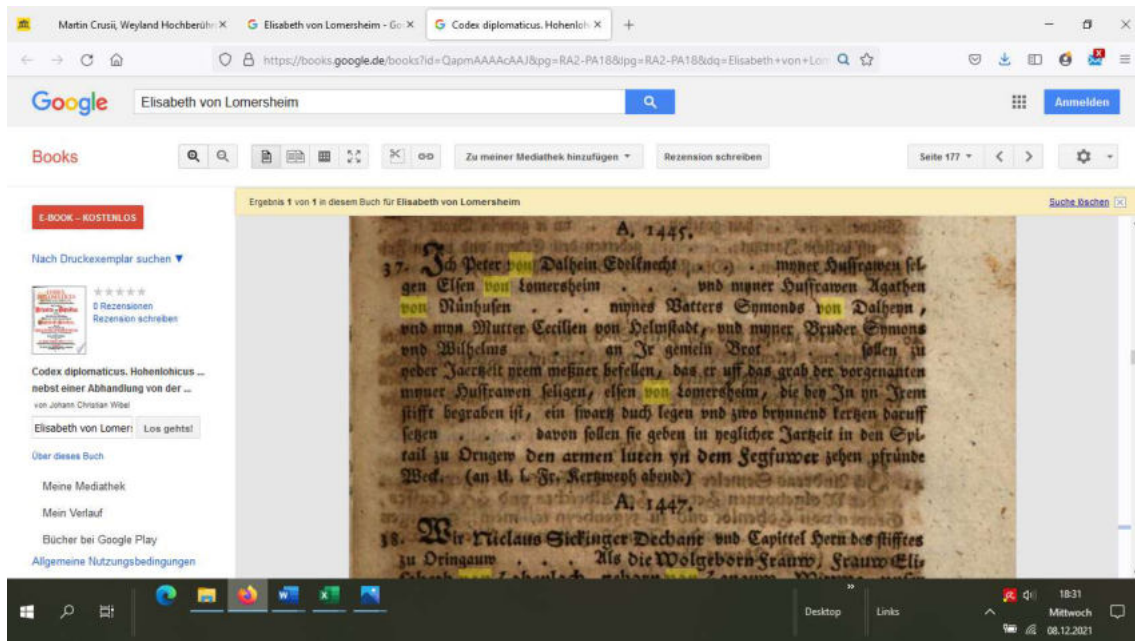 Martin Crusii, Weyland Hochberühr
Elisabeth von Lomersheim - Go
Codex diplomaticus. Hohenloh
https://books.google.de/books?id=QapmAAAAcAAJ&pg=RA2-PA18&lpg=RA2-PA18&dq=Elisabeth+von+Lom
Google
Elisabeth von Lomersheim
Anmelden
Books
Zu meiner Mediathek hinzufügen
Rezension schreiben
Seite 177
E-BOOK – KOSTENLOS
Ergebnis 1 von 1 in diesem Buch für Elisabeth von Lomersheim
Suche löschen
Nach Druckexemplar suchen ▼
0 Rezensionen
Rezension schreiben
Codex diplomaticus. Hohenlohicus ...
nebst einer Abhandlung von der ...
von Johann Christian Wibel
Elisabeth von Lomer
Los gehts!
Über dieses Buch
Meine Mediathek
Mein Verlauf
Bücher bei Google Play
Allgemeine Nutzungsbedingungen
A. 1445.
37. Ich Peter von Dalhein Edelknecht . . . myner Hussrawen sel-
gen Elsen von Lomersheim . . . vnd myner Hussrawen Agathen
von Nünhusen . . . mynes Vatters Symonds von Dalheyn,
vnd myn Mutter Cecilien von Helmstadt, vnd myner Bruder Symons
vnd Wilhelms . . . an Jr gemein Brot . . . sollen zu
yeder Jaerkeit yrem meßner befellen, das er uff das grab der vorgenanten
myner Hussrawen seligen, elsen von Lomersheim, die bey In yn Jrem
stifft begraben ist, ein swartz duch legen vnd zwo brynnend kertzen daruff
setzen . . . davon sollen sie geben in yeglicher Jarkeit in den Spi-
tail zu Orngew den armen luten yn dem Fegfuwer zehen pfründe
Weck. (an U. L. Fr. Kertzweyh abend.)
A. 1447.
38. Wir Niclaus Sickinger Dechant vnd Capittel Hern des stifftes
zu Oringauw . . . Als die Wolgeborn Frauw, Frauw Eli-
Desktop
Links
18:31
Mittwoch
08.12.2021